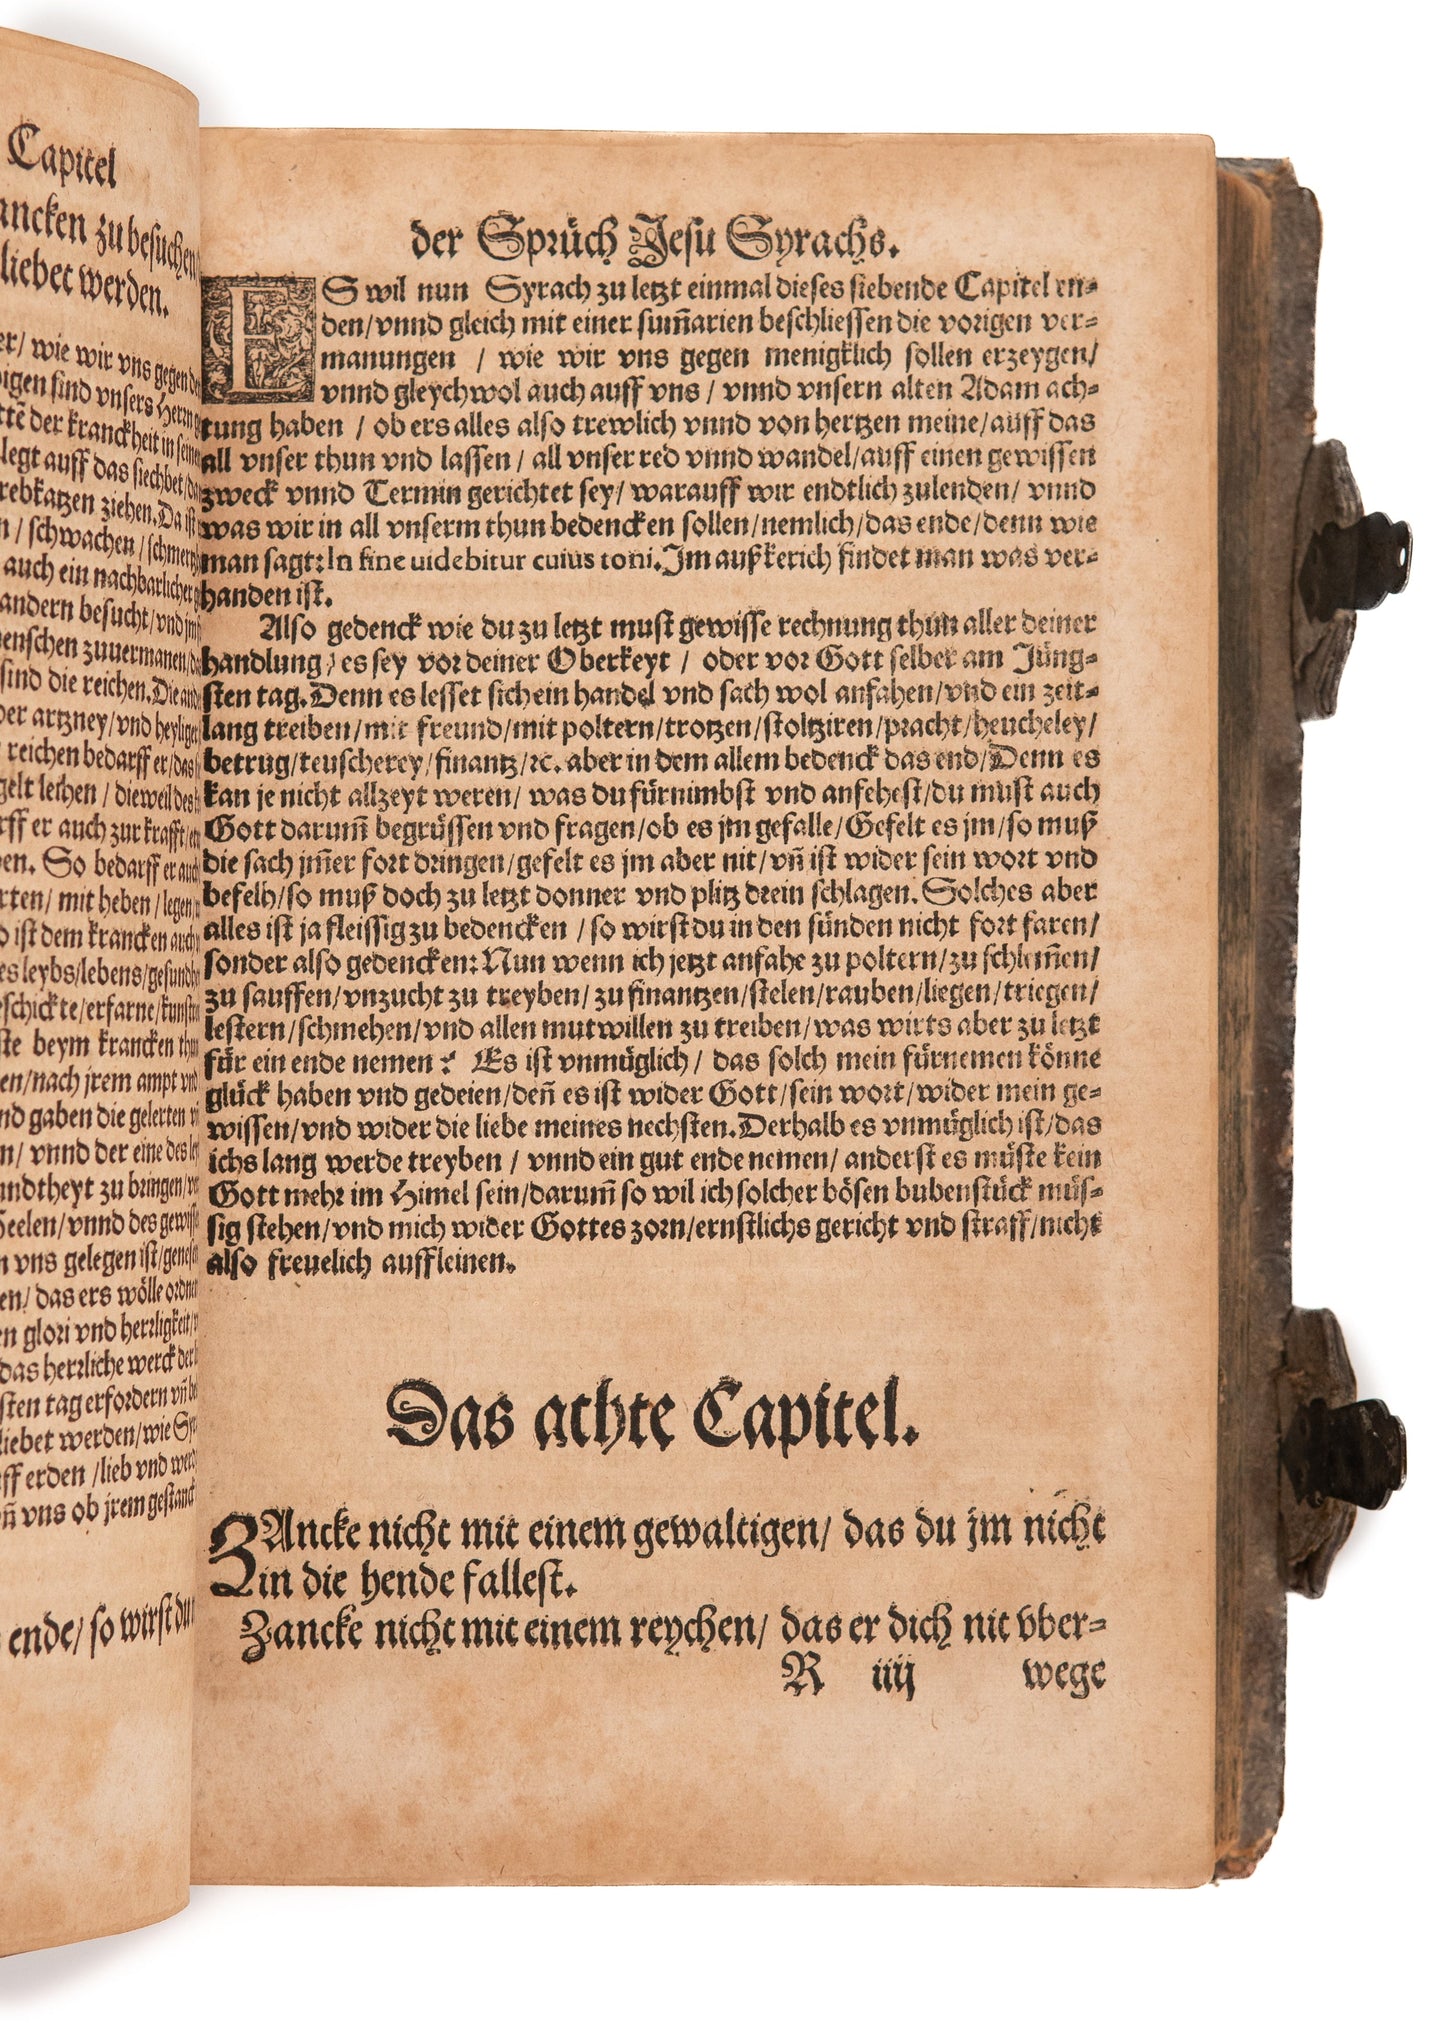 Capitel
ancken zu besuchen
liebet werden.
er/ wie wir vns gegen
igen sind vnsers
der kranckheit in
legt auff das siechbet/
ziehen. Da ist
/ schwachen /
auch ein nachbarlicher
andern besucht/vnd
zuuermanen/
sind die reichen. Die
artzney/vnd
reichen bedarff er/das
/ dieweil des
er auch zur krafft/
en. So bedarff er auch
/ mit heben / legen/
ist dem krancken auch
leybs/lebens/
schickte/erfarne/
beym krancken
en/nach jrem ampt vnd
gaben die gelerten
n/ vnnd der eine des
zu bringen/
Seelen/vnnd des
vns gelegen ist/
en/ das ers wölle
glori vnd herrligkeit/
das herrliche werck der
sten tag erfordern vñ
liebet werden/wie
auff erden /lieb vnd
vns ob jrem gestanck
ende/ so wirst du
der Sprüch Jesu Syrachs.
ES wil nun Syrach zu letzt einmal dieses siebende Capitel en-
den/vnnd gleich mit einer sum̃arien beschliessen die vorigen ver-
manungen / wie wir vns gegen menigklich sollen erzeygen/
vnnd gleychwol auch auff vns / vnnd vnsern alten Adam ach-
tung haben / ob ers alles also trewlich vnnd von hertzen meine/auff das
all vnser thun vnd lassen / all vnser red vnnd wandel/auff einen gewissen
zweck vnnd Termin gerichtet sey/ warauff wir endtlich zulenden/ vnnd
was wir in all vnserm thun bedencken sollen/nemlich/das ende/denn wie
man sagt: In fine uidebitur cuius toni. Im außkerich findet man was ver-
handen ist.
Also gedenck wie du zu letzt must gewisse rechnung thun aller deiner
handlung / es sey vor deiner Oberkeyt / oder vor Gott selber am Jüng-
sten tag. Denn es lesset sich ein handel vnd sach wol anfahen/vnd ein zeit-
lang treiben/mit freund/mit poltern/trotzen/stoltziren/pracht/heucheley/
betrug/teuscherey/finantz/ꝛc. aber in dem allem bedenck das end/Denn es
kan je nicht allzeyt weren/ was du fürnimbst vnd anfehest/du must auch
Gott darum̃ begrüssen vnd fragen/ob es jm gefalle/Gefelt es jm/so muß
die sach jm̃er fort dringen/gefelt es jm aber nit/vñ ist wider sein wort vnd
befelh/so muß doch zu letzt donner vnd plitz drein schlagen. Solches aber
alles ist ja fleissig zu bedencken / so wirst du in den sünden nicht fort faren/
sonder also gedencken: Nun wenn ich jetzt anfahe zu poltern/zu schlem̃en/
zu sauffen/vnzucht zu treyben/zu finantzen/stelen/rauben/liegen/triegen/
lestern/schmehen/vnd allen mutwillen zu treiben/was wirts aber zu letzt
für ein ende nemen? Es ist vnmüglich/ das solch mein fürnemen könne
glück haben vnd gedeien/deñ es ist wider Gott/sein wort/wider mein ge-
wissen/vnd wider die liebe meines nechsten. Derhalb es vnmüglich ist/das
ichs lang werde treyben / vnnd ein gut ende nemen/ anderst es müste kein
Gott mehr im Himel sein/darum̃ so wil ich solcher bösen bubenstück müs-
sig stehen/vnd mich wider Gottes zorn/ernstlichs gericht vnd straff/nicht
also freuelich auffleinen.
Das achte Capitel.
ZAncke nicht mit einem gewaltigen/ das du jm nicht
in die hende fallest.
Zancke nicht mit einem reychen/ das er dich nit vber-
R iiij wege